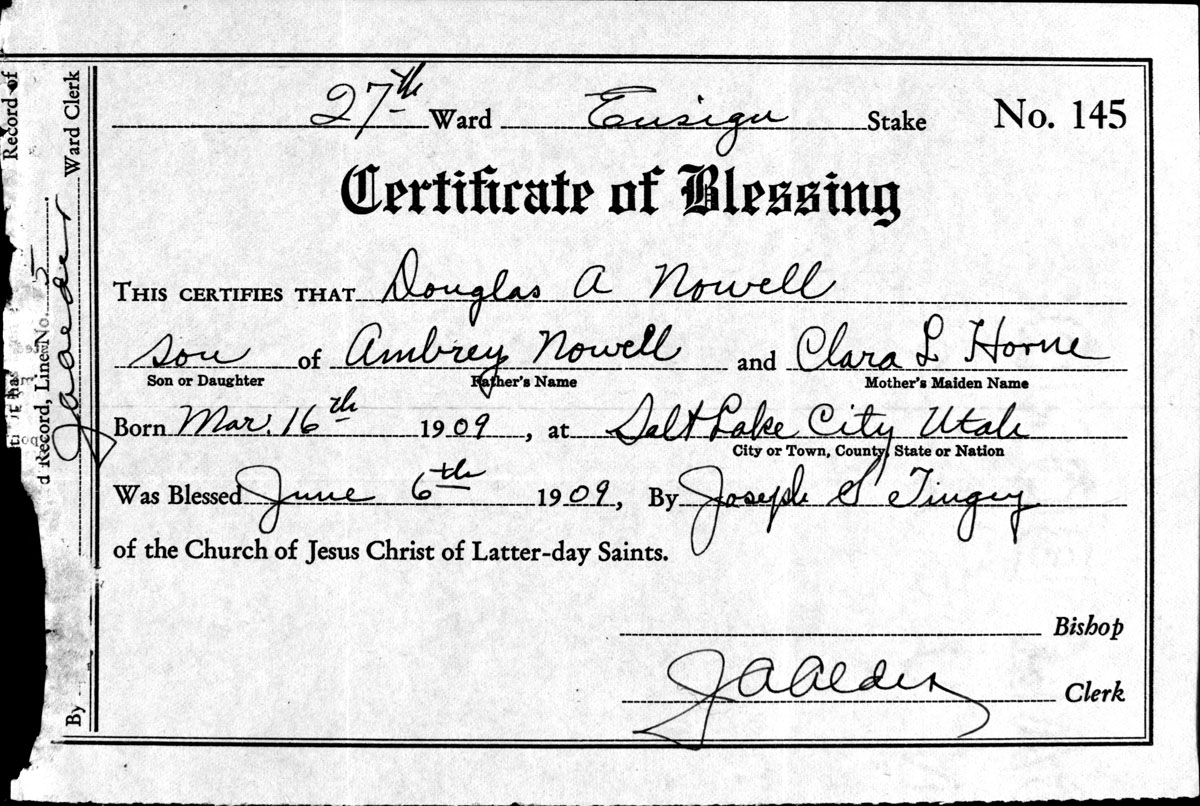 27th Ward Ensign Stake No. 145
Certificate of Blessing
THIS CERTIFIES THAT Douglas A Nowell
son of Ambrey Nowell and Clara L Horne
Son or Daughter Father's Name Mother's Maiden Name
Born Mar. 16th 1909, at Salt Lake City Utah
City or Town, County, State or Nation
Was Blessed June 6th 1909, By Joseph S Tingey
of the Church of Jesus Christ of Latter-day Saints.
Bishop
J A Alder Clerk
Record of
d Record, Line No. 5
By J A Alder Ward Clerk